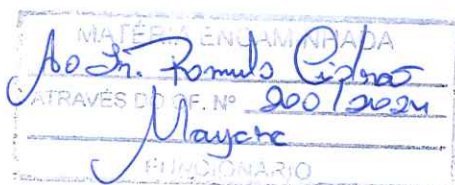 MATÉRIA ENCAMINHADA
Ao Sr. Romulo
ATRAVÉS DO OF. Nº 200/2024
Mayara
FUNCIONÁRIO